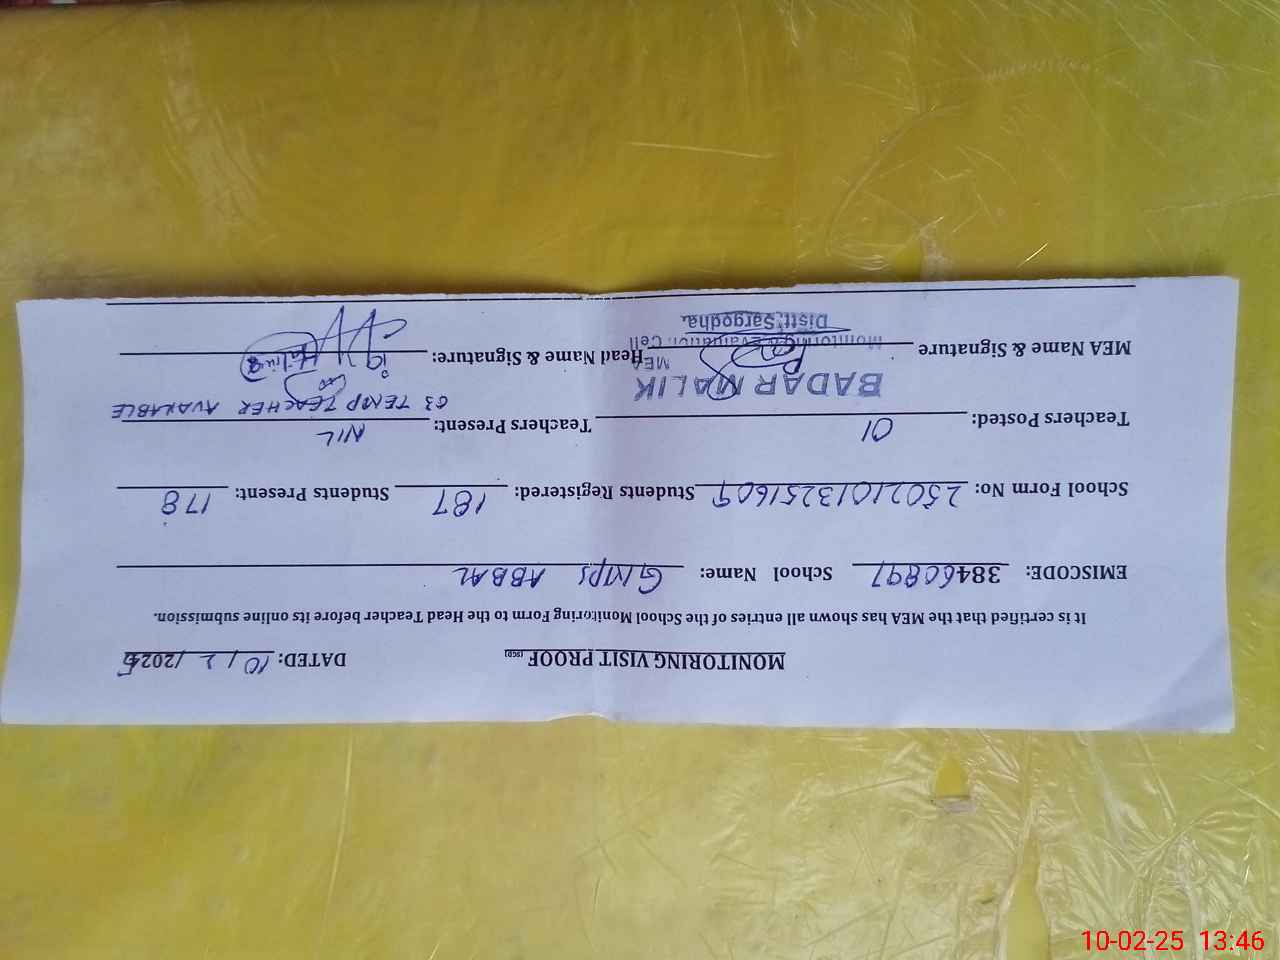 MONITORING VISIT PROOF (SGD) DATED: 10/2/2025
It is certified that the MEA has shown all entries of the School Monitoring Form to the Head Teacher before its online submission.
EMISCODE: 38460897 School Name: GMPS ABBAL
School Form No: 25021013251609 Students Registered: 187 Students Present: 178
Teachers Posted: 01 Teachers Present: NIL
03 TEMP TEACHER AVAILABLE
BADAR MALIK
MEA
MEA Name & Signature Head Name & Signature:
Monitoring & Evaluation Cell
Distt. Sargodha.
10-02-25 13:46